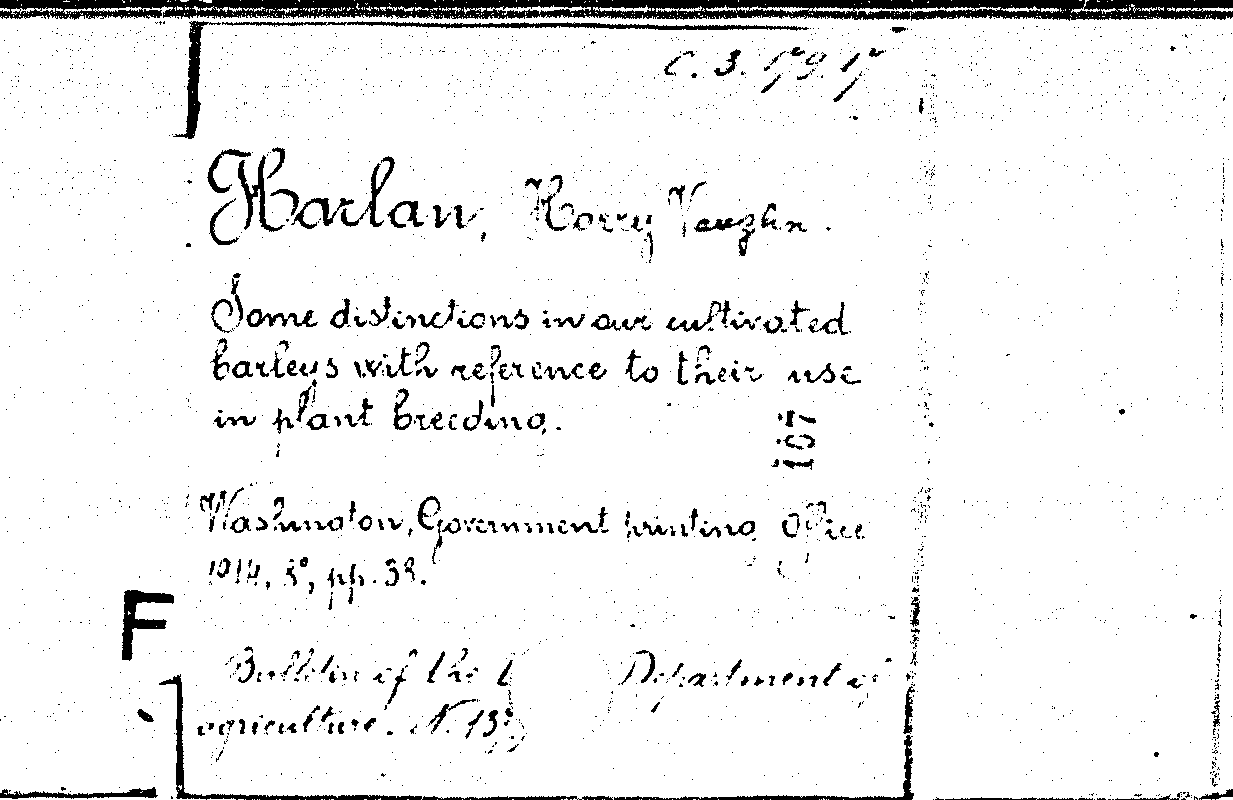 C. 3. 179. 17
Harlan, Harry Vaughn.
Some distinctions in our cultivated
barleys with reference to their use
in plant breeding.
107
Washington, Government printing Office
1914, 8°, pp. 38.
F
Bulletin of the Department of
agriculture. N. 137